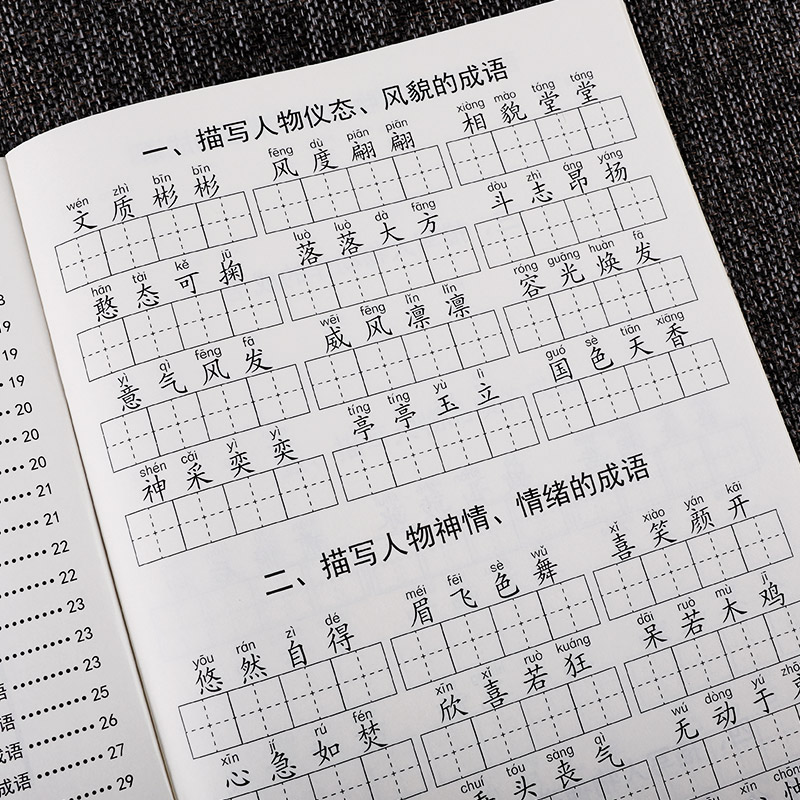 一、描写人物仪态、风貌的成语
wén zhì bīn bīn fēng dù piān piān xiàng mào táng táng
文质彬彬 风度翩翩 相貌堂堂
hān tài kě jū luò luò dà fāng dǒu zhì áng yáng
憨态可掬 落落大方 斗志昂扬
yì qì fēng fā wēi fēng lǐn lǐn róng guāng huàn fā
意气风发 威风凛凛 容光焕发
shén cǎi yì yì tíng tíng yù lì guó sè tiān xiāng
神采奕奕 亭亭玉立 国色天香
二、描写人物神情、情绪的成语
yōu rán zì dé méi fēi sè wǔ xǐ xiào yán kāi
悠然自得 眉飞色舞 喜笑颜开
xīn jí rú fén xīn xǐ ruò kuáng dāi ruò mù jī
心急如焚 欣喜若狂 呆若木鸡
chuí tóu sàng qì wú dòng yú
头丧气 无动于
19
19
19
20
20
20
21
21
22
22
23
23
23
语 25
成语 26
成语 27
成语 29